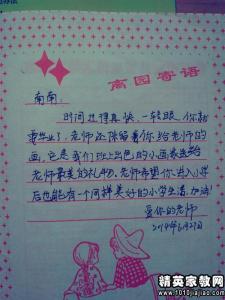 离园寄语
南南:
时间过得真快,一转眼你就
要毕业了,老师还保留着你给老师的
画,它是我们班上出色的小画家送给
老师最美的礼物。老师希望你进入小学
后也能有一个同样美好的小学生活,加油!
爱你的老师
2014年6月27日
精英家教网
www.1010jiajiao.com